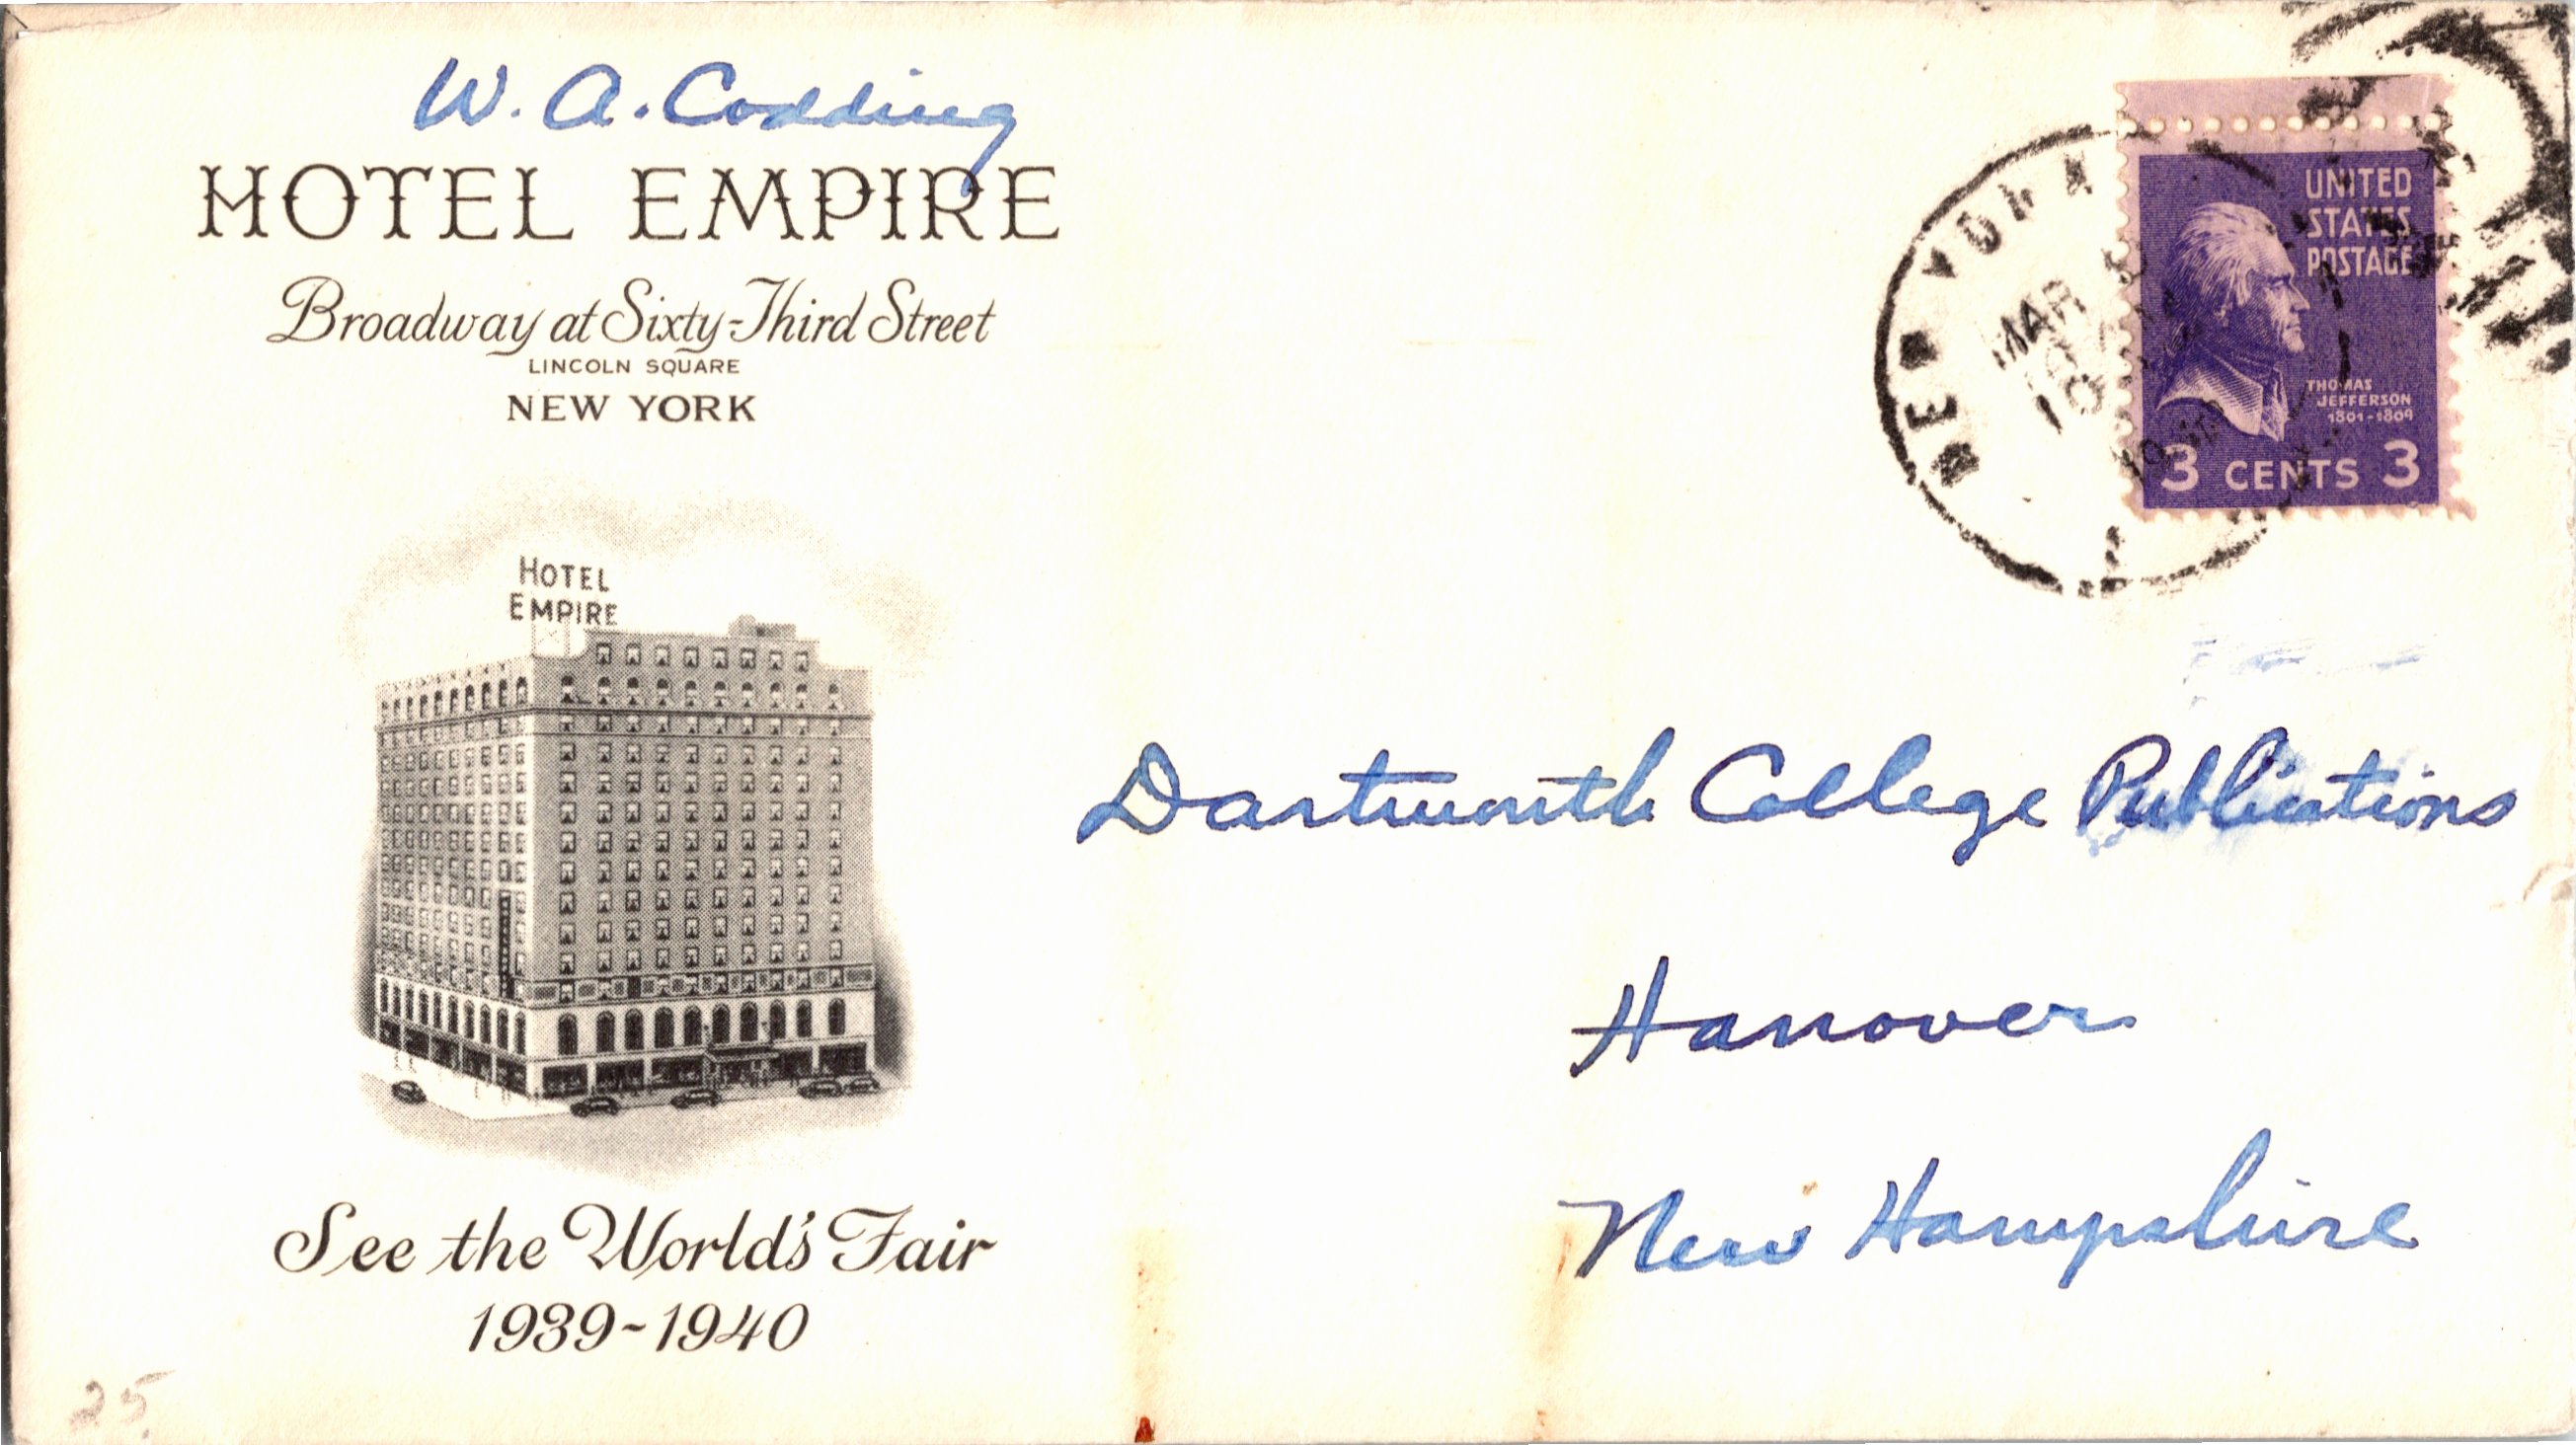 W. A. Codding
HOTEL EMPIRE
Broadway at Sixty-Third Street
LINCOLN SQUARE
NEW YORK
HOTEL
EMPIRE
See the World's Fair
1939-1940
25
NEW YORK
MAR
UNITED
STATES
POSTAGE
THOMAS
JEFFERSON
1801-1809
3 CENTS 3
Dartmouth College Publications
Hanover
New Hampshire